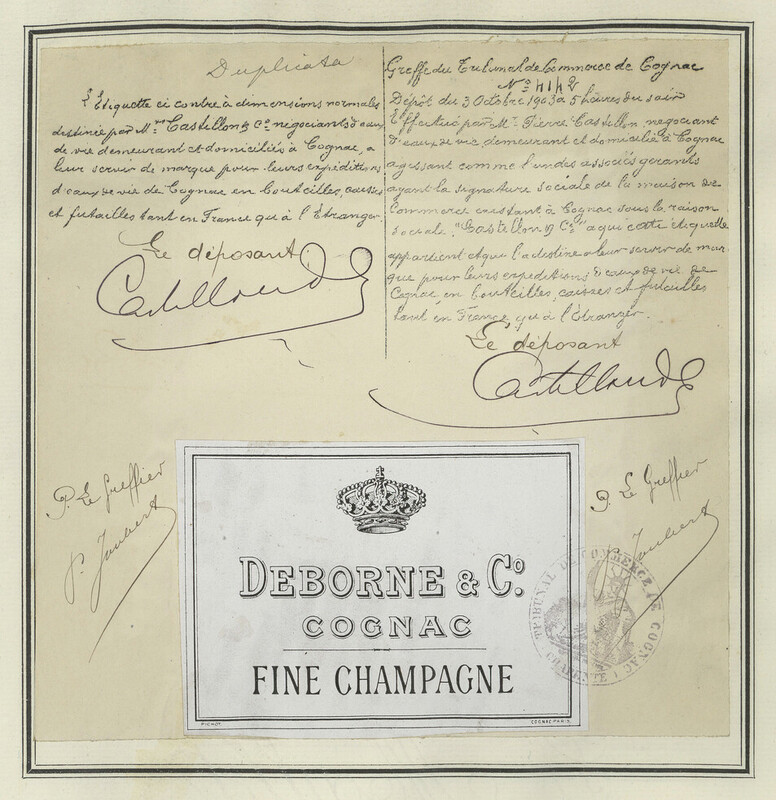 Duplicata
L'Etiquette ci contre à dimensions normales
destinée par Mrs Castillon & Co négociants d'eaux
de vie demeurant et domiciliés à Cognac, a
leur servir de marque pour leurs expéditions
d'eaux de vie de Cognac en bouteilles, caisses
et futailles tant en France qu'à l'Etranger.
Le déposant
Greffe du Tribunal de Commerce de Cognac
No 4142
Dépôt du 3 Octobre 1903 à 5 heures du soir
Effectué par Mr Pierre Castillon, négociant
d'eaux de vie demeurant et domicilié à Cognac
agissant comme l'un des associés gérants
ayant la signature sociale de la maison de
Commerce existant à Cognac sous la raison
sociale "Castillon & Co" a qui cette etiquette
appartient et qui l'a destine a leur servir de mar
que pour leurs expéditions d'eaux de vie de
Cognac en bouteilles, caisses et futailles
tant en France qu'à l'Etranger.
Le déposant
P. Le Greffier
P. Joubert
P. Le Greffier
Joubert
DEBORNE & Co.
COGNAC
FINE CHAMPAGNE
PICHOT
COGNAC-PARIS
TRIBUNAL DE COMMERCE DE COGNAC
(CHARENTE)